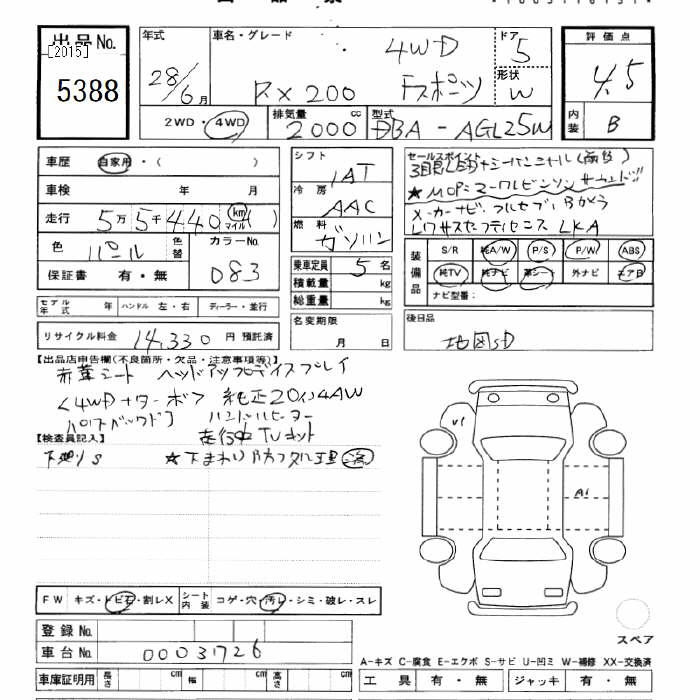 出品No.
[2015]
5388
年式
28/6月
車名・グレード
4WD
RX200 Fスポーツ
ドア
5
形状
W
評価点
4.5
内装
B
2WD・4WD
排気量
2000 cc
型式
DBA-AGL25W
車歴 自家用・( )
車検 年 月
走行 5万5千440 km マイル
色 パール
色替
カラーNo. 083
保証書 有・無
シフト
IAT
冷房
AAC
燃料
ガソリン
乗車定員 5名
積載量 kg
総重量 kg
セールスポイント
3眼LED+シーケンシャル(両方)
★MOPマークレビンソンサウンド!!
メーカーナビ・フルセグ Bカメラ
レクサスセーフティセンス LKA
装備品
S/R 純A/W P/S P/W ABS
純TV 純ナビ 革シート 外ナビ エアB
ナビ型番:
モデル年式 年 ハンドル 左・右 ディーラー・並行
リサイクル料金 14,330 円 預託済
名変期限
月 日
後日品
地図SD
【出品店申告欄(不良箇所・欠品・注意事項等)】
赤革シート ヘッドアップディスプレイ
<4WD+ターボ> 純正20インチAW
パワーバックドア ハンドルヒーター
走行中TVキット
【検査員記入】
下廻りS ★下まわり防サビ処理 済
FW キズ・トビ石・割レX
シート内装 コゲ・穴・汚レ・シミ・破レ・スレ
登録No.
車台No. 00031726
車庫証明用 長さ cm 幅 cm 高さ cm
U1
A1
スペア
A-キズ C-腐食 E-エクボ S-サビ U-凹ミ W-補修 XX-交換済
工具 有・無 ジャッキ 有・無